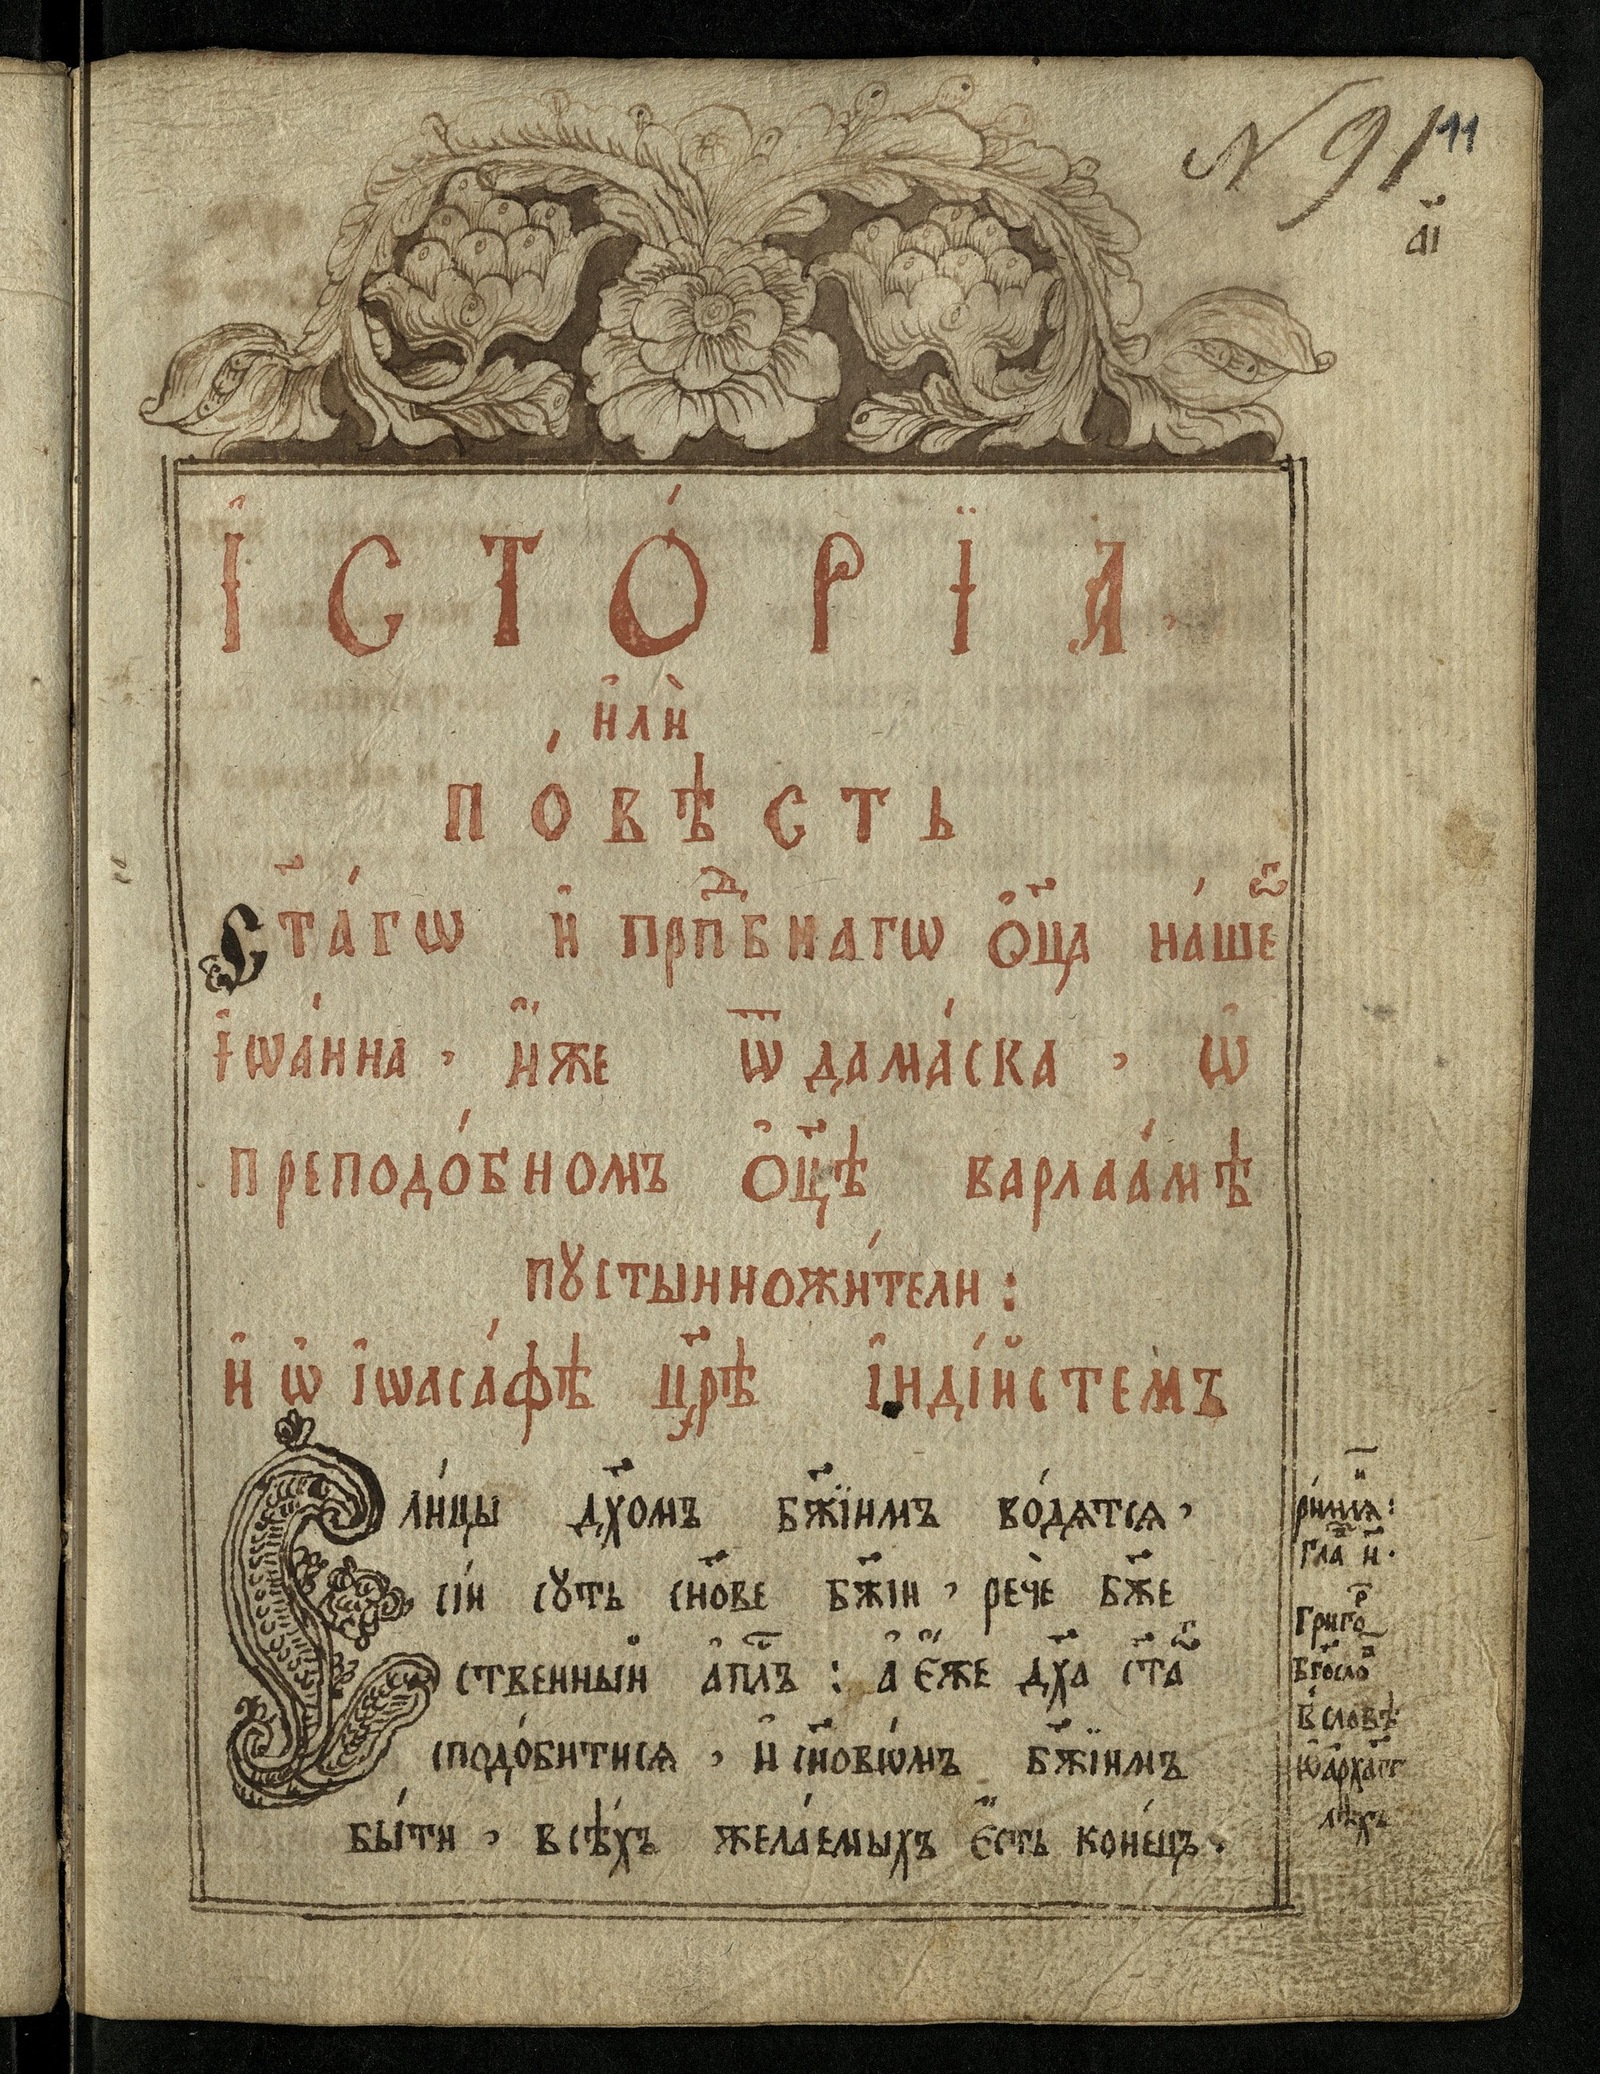 N 91
11
а҃і
І҆СТО́РІѦ.
и҆лѝ
ПО́ВѢСТЬ
Ст҃а́гѡ и҆ прпⷣбнагѡ ѻ҆ц҃а на́шеⷢ҇
І҆ѡа́нна, и҆́же ѿ дама́ска, ѡ҆
преподо́бномъ ѻ҆ц҃ѣ варлаа́мѣ
пꙋстынножи́тели:
и҆ ѡ҆ і҆ѡаса́фѣ цр҃ѣ і҆нді́йстемъ
Ели́цы дх҃омъ бж҃іимъ во́дятся,
сі́и сꙋть сн҃ове бж҃іи, речѐ бж҃е
ственный а҆пⷭ҇лъ: а҆ є҆́же дх҃а ст҃аⷢ҇
сподо́битися, и҆ сн҃овіѡ́мъ бж҃іимъ
бы́ти, всѣ́хъ жела́емыхъ є҆́сть коне́цъ.
ри́млѧⷨ:
глаⷡ и҃.
Григоⷬ
Бг҃осло
в̾ словѣ
ѡ҆ а҆рха́гг
лѣхъ